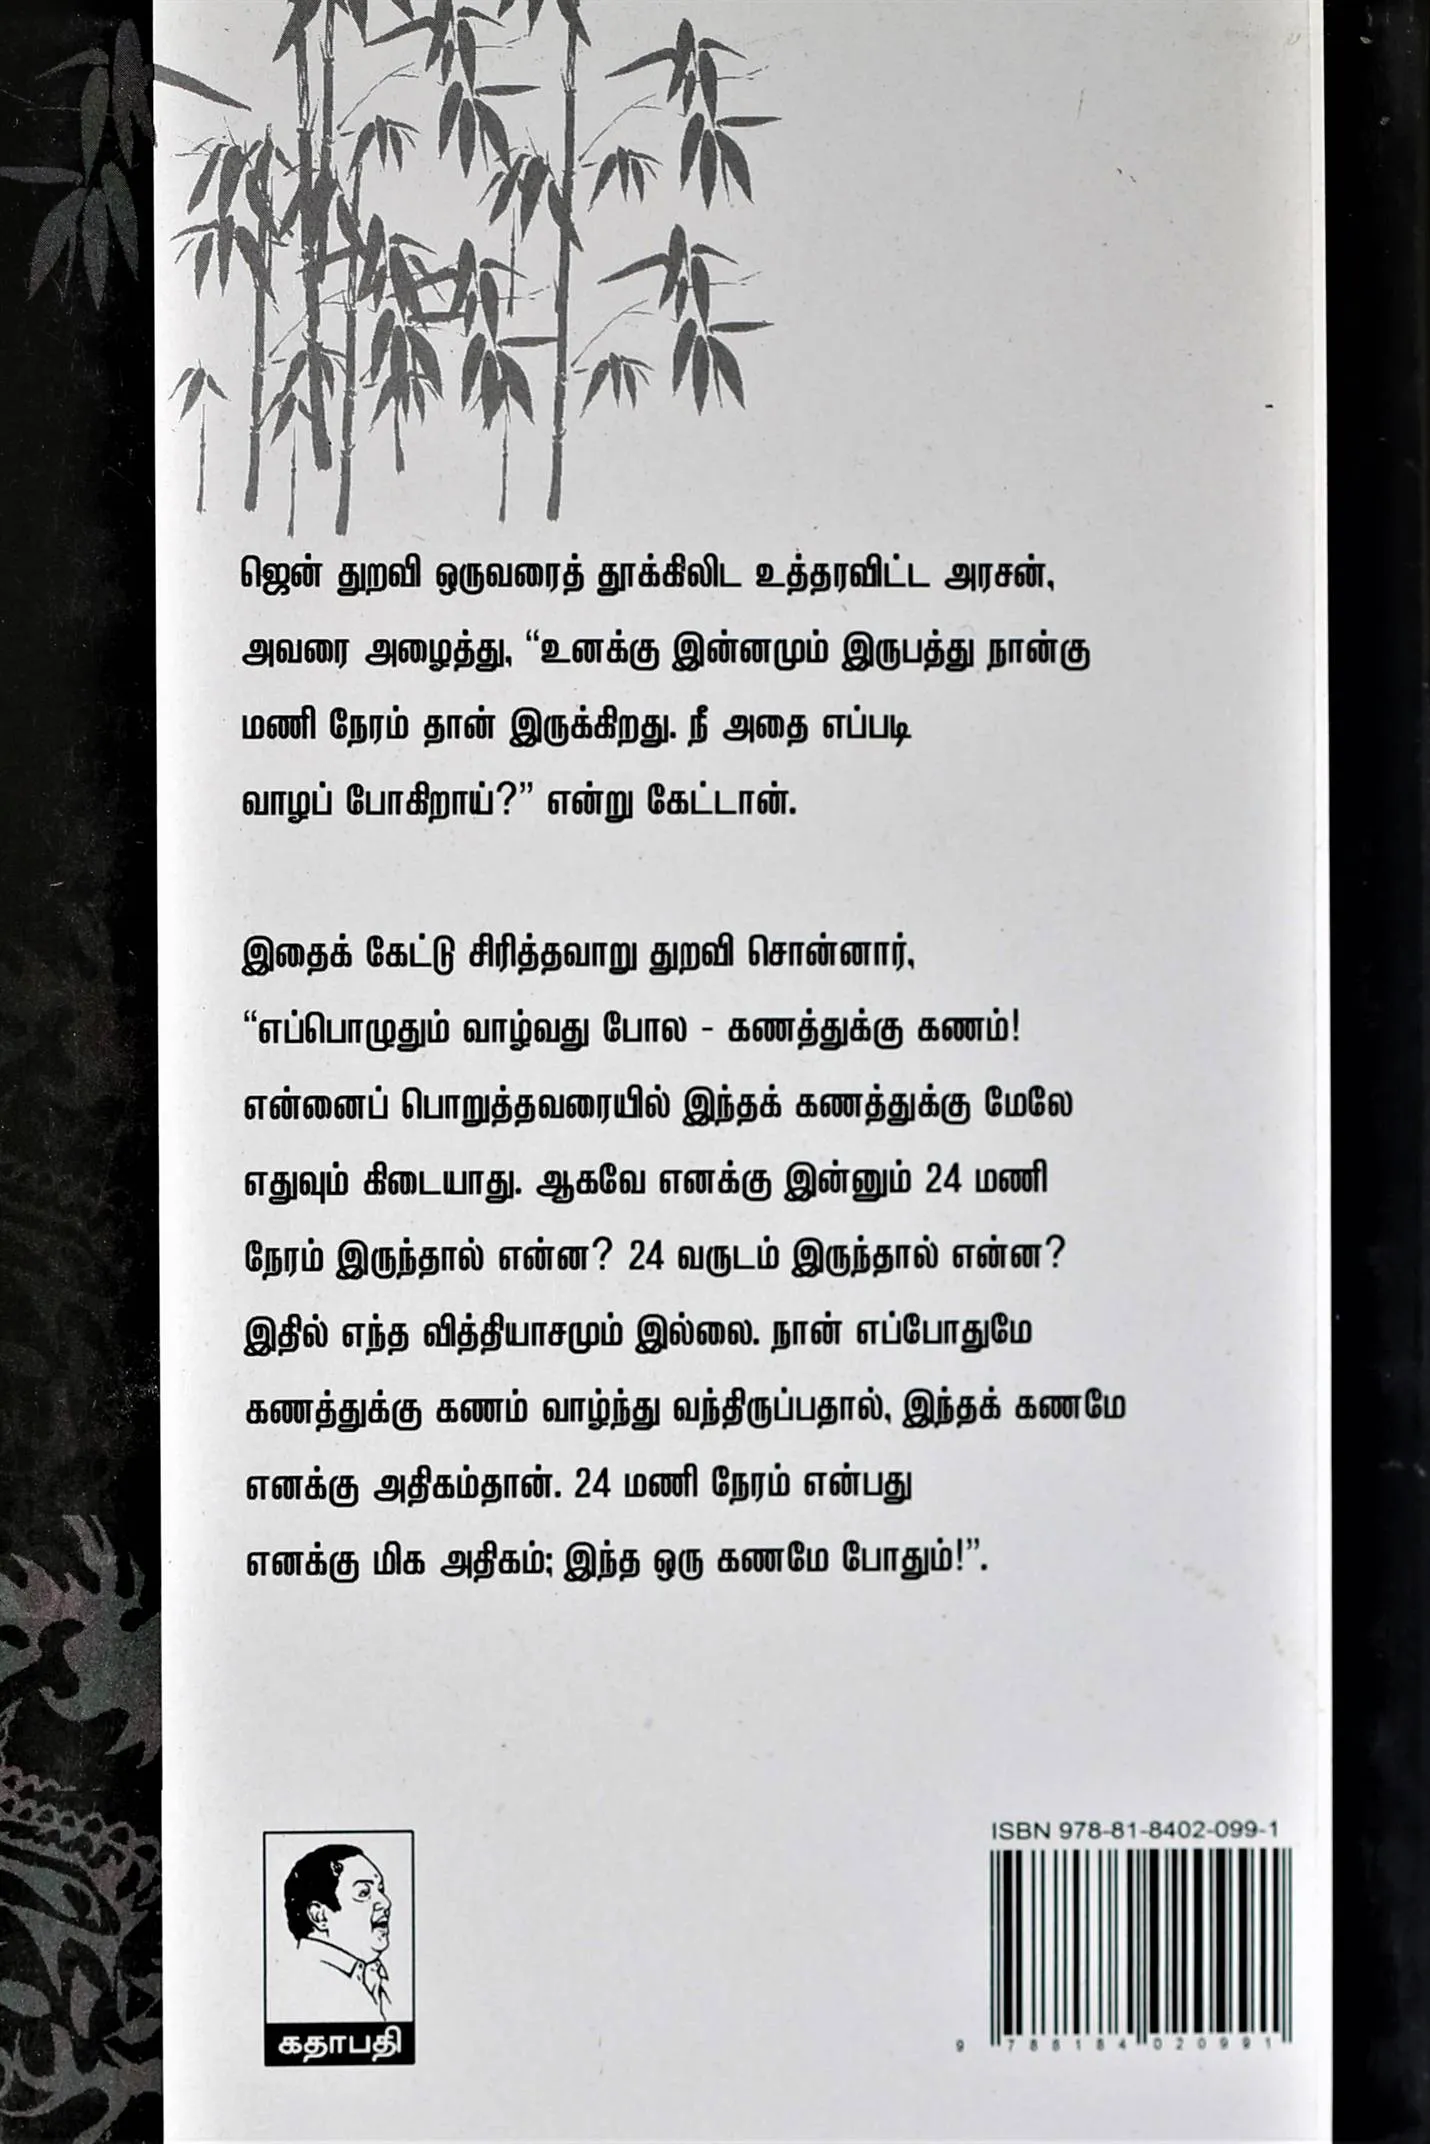 ஜென் துறவி ஒருவரைத் தூக்கிலிட உத்தரவிட்ட அரசன்,
அவரை அழைத்து, “உனக்கு இன்னமும் இருபத்து நான்கு
மணி நேரம் தான் இருக்கிறது. நீ அதை எப்படி
வாழப் போகிறாய்?” என்று கேட்டான்.
இதைக் கேட்டு சிரித்தவாறு துறவி சொன்னார்,
“எப்பொழுதும் வாழ்வது போல - கணத்துக்கு கணம்!
என்னைப் பொறுத்தவரையில் இந்தக் கணத்துக்கு மேலே
எதுவும் கிடையாது. ஆகவே எனக்கு இன்னும் 24 மணி
நேரம் இருந்தால் என்ன? 24 வருடம் இருந்தால் என்ன?
இதில் எந்த வித்தியாசமும் இல்லை. நான் எப்போதுமே
கணத்துக்கு கணம் வாழ்ந்து வந்திருப்பதால், இந்தக் கணமே
எனக்கு அதிகம்தான். 24 மணி நேரம் என்பது
எனக்கு மிக அதிகம்; இந்த ஒரு கணமே போதும்!”.
ISBN 978-81-8402-099-1
9 788184 020991
கதாபதி